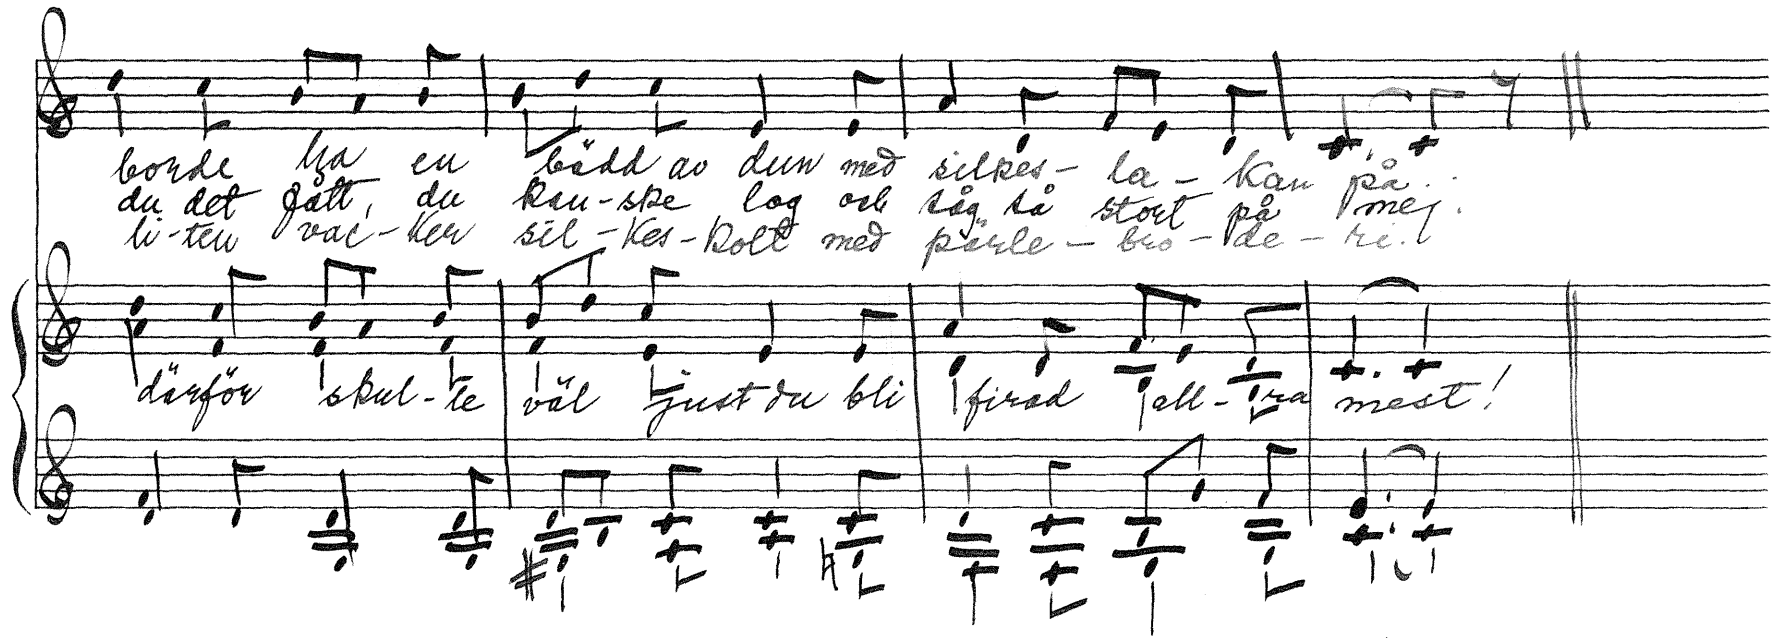 borde ha en bädd av dun med silkes- la - kan på.
du det fått, du kan-ske log och såg så stort på mej.
li-ten vac-ker sil-kes-kolt med pärle - bro - de - ri.
därför skul-le väl just du bli firad all-ra mest!